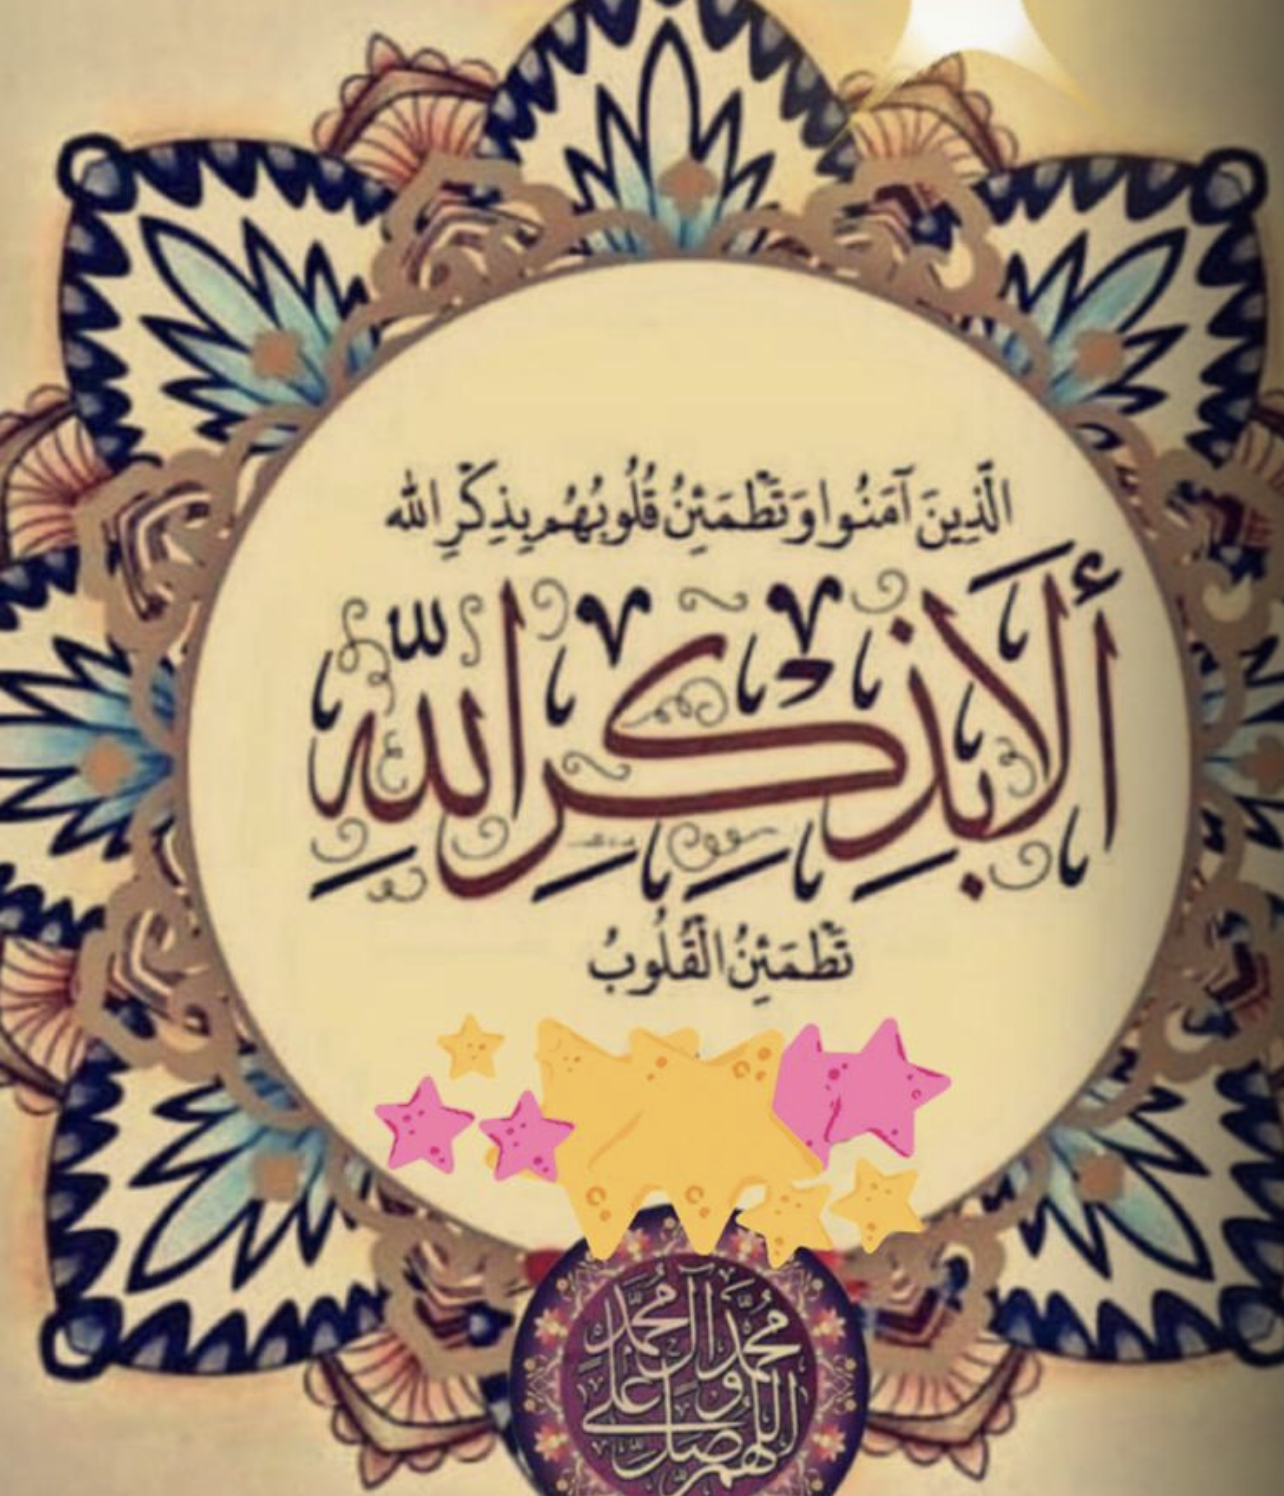 الَّذِينَ آمَنُوا وَتَطْمَئِنُّ قُلُوبُهُم بِذِكْرِ الله
أَلَا بِذِكْرِ اللَّهِ
تَطْمَئِنُّ الْقُلُوبُ
اللهم صل على
محمد وآل محمد